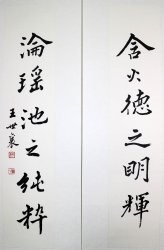 含火德之明輝
淪瑤池之純粹
王世襄